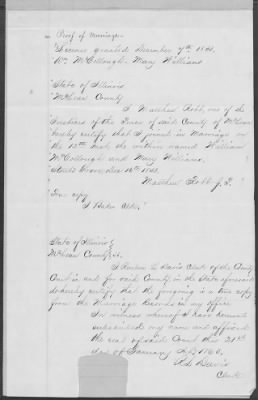 Proof of Marriage.
License granted December 7th 1840.
Wm McCullough. Mary Williams
State of Illinois
McLean County
I Matthew Robb, one of the
Justices of the Peace of said County of McLean
hereby certify that I joined in Marriage on
the 12th inst the within named William
McCullough and Mary Williams.
Grove, Dec 14th 1840.
Matthew Robb J.P.
True copy
I Baker Clk.
State of Illinois }
McLean County } ss.
I L Davis Clerk of the County
Court in and for said County in the State aforesaid
do hereby certify that the foregoing is a true copy
from the Marriage Records in my office
In witness whereof I have hereunto
subscribed my name and affixed
the seal of said Court this 21st
day of January A.D. 186
Davis
Clerk